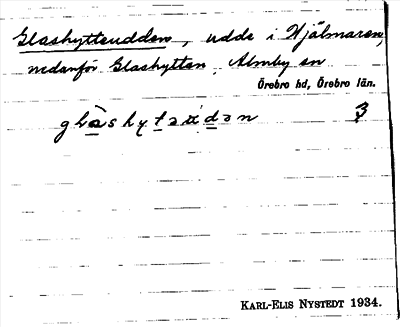 Glashytteudden, udde i Hjälmaren,
nedanför Glashyttan, Almby sn
Örebro hd, Örebro län.
glàshytaùdən 3
KARL-ELIS NYSTEDT 1934.